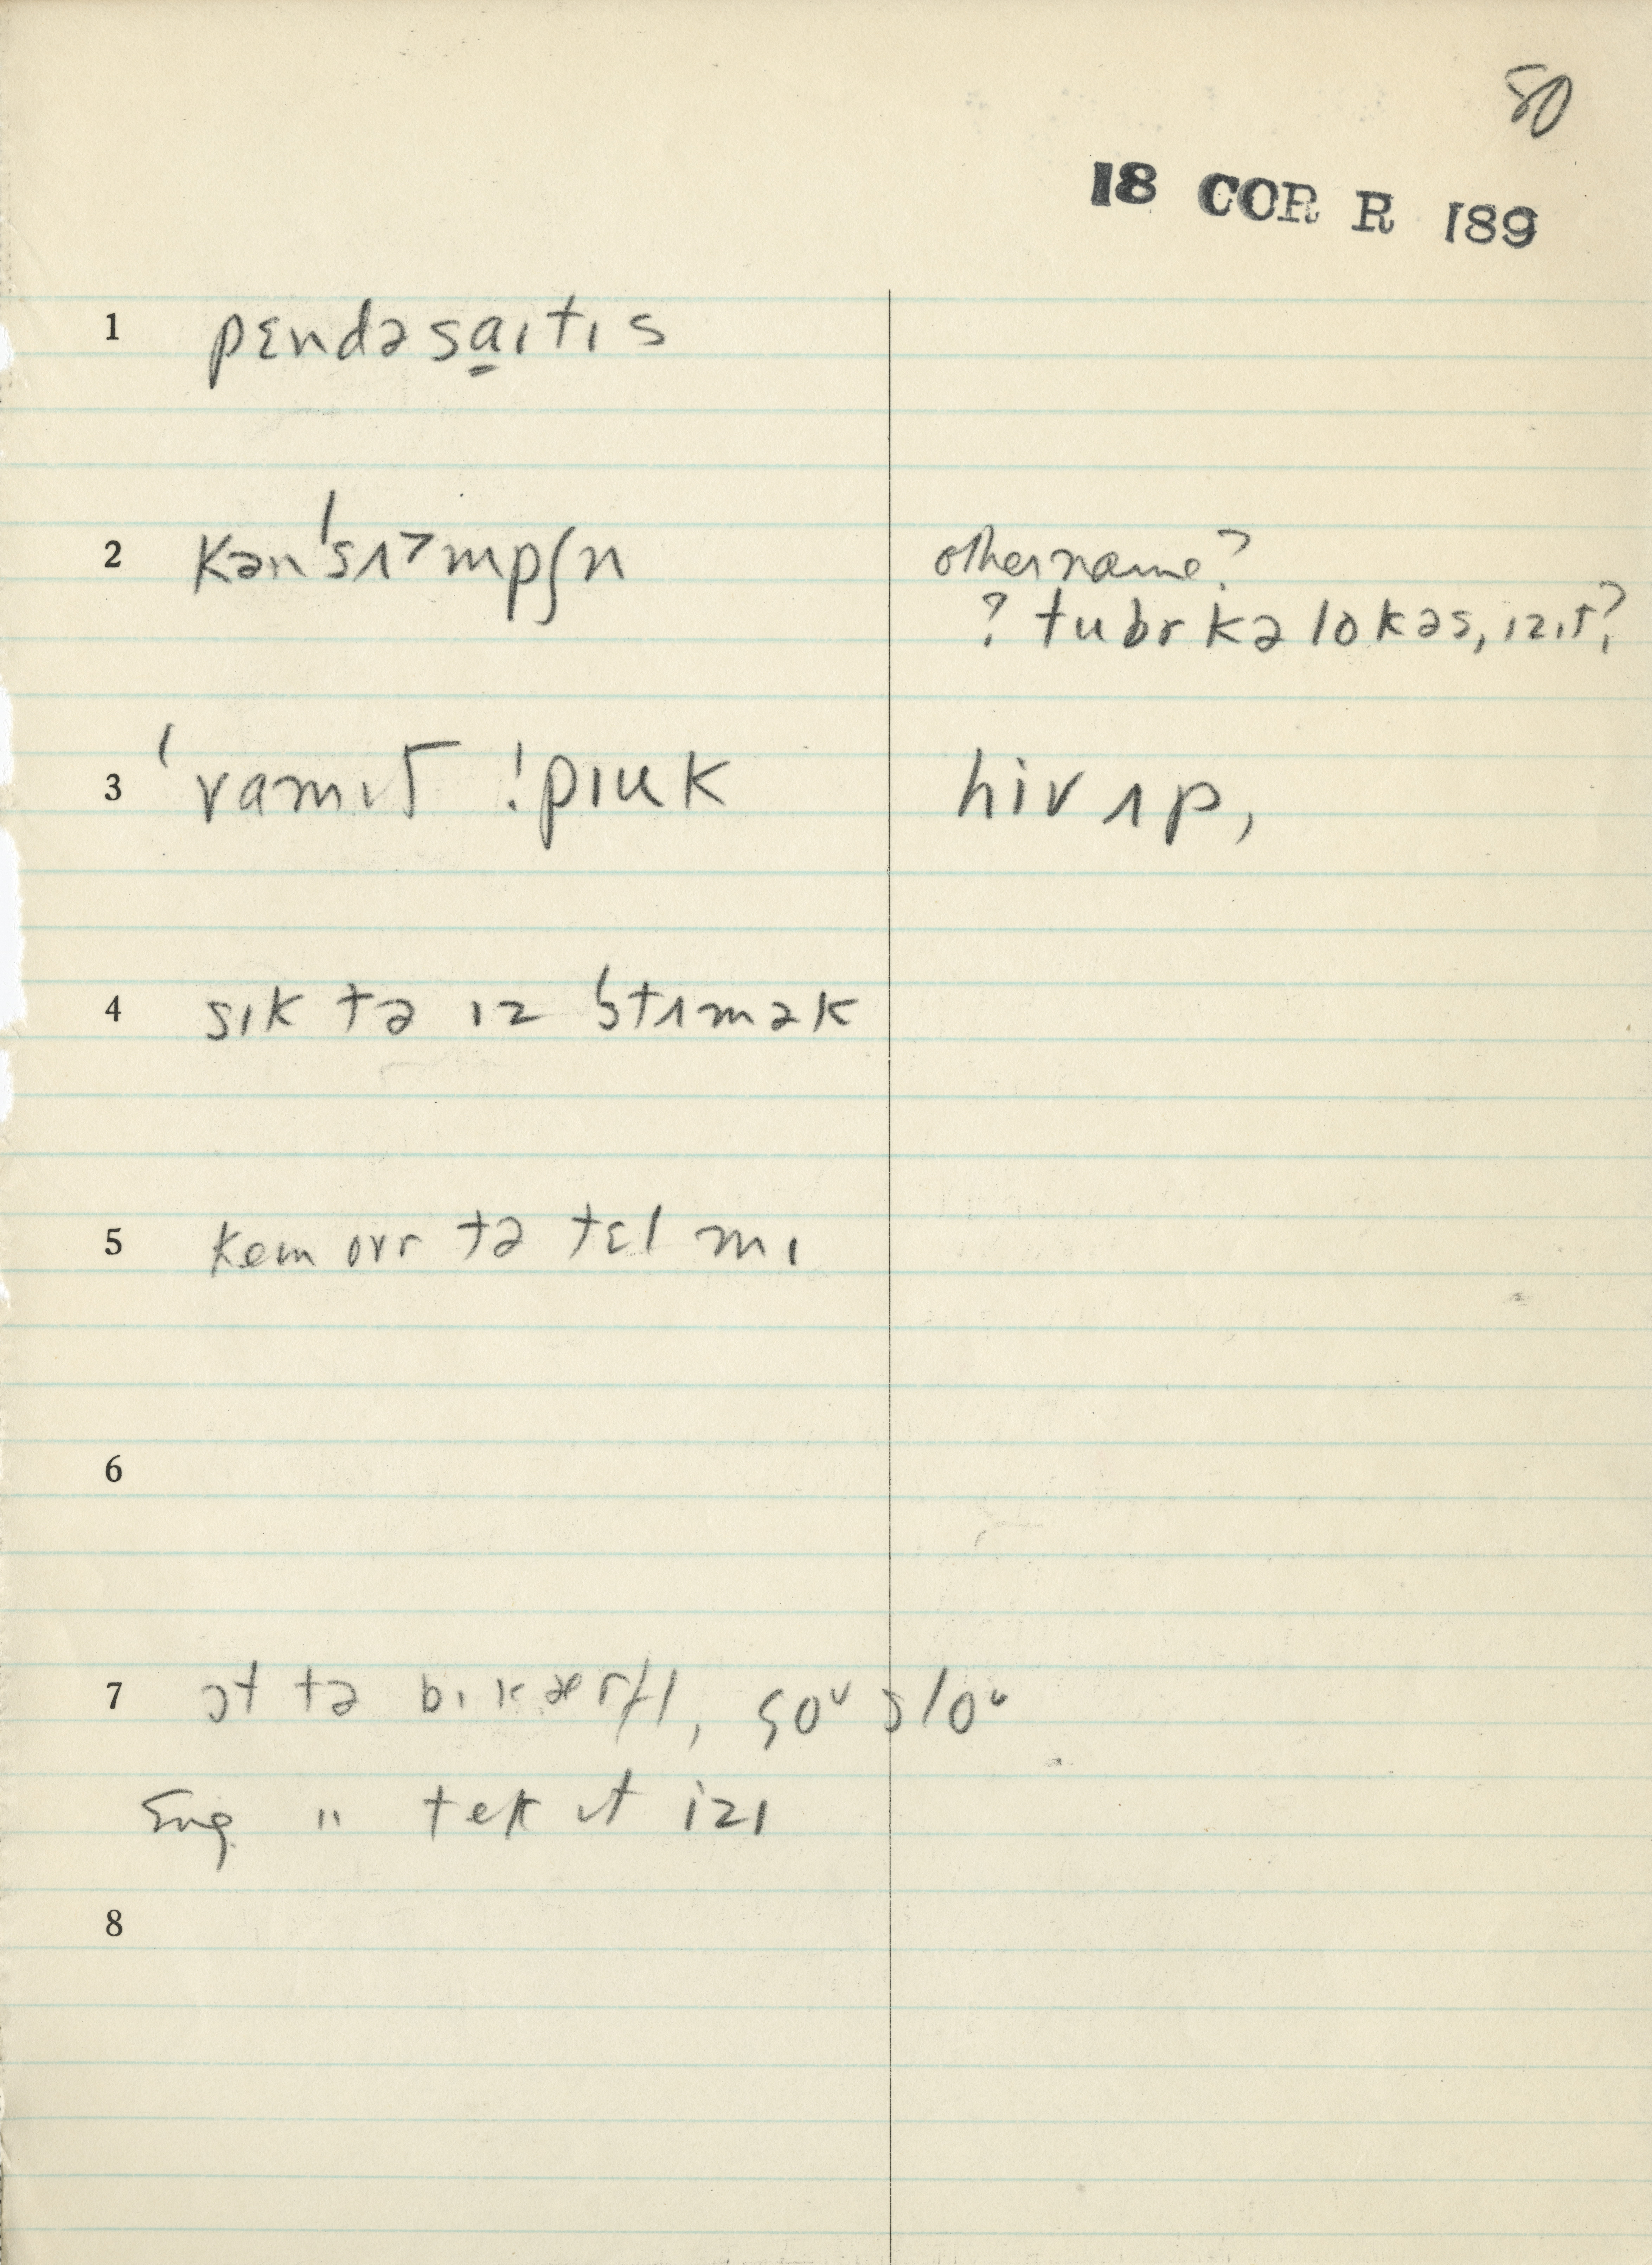 50
18 COR R 189
1 pɛndəsaɪtɪs
2 kən'sʌ>mpʃn
other name?
? tubrkəlokəs, ɪzɪt?
3 'vamɪt !pɪuk
hiv ʌp,
4 sɪk tə ɪz 'stʌmək
5 kem ovr tə tɛl mɪ
6
7 ɔt tə bɪ kærfl, goᵘ sloᵘ
Eng. " tek ɪt izɪ
8